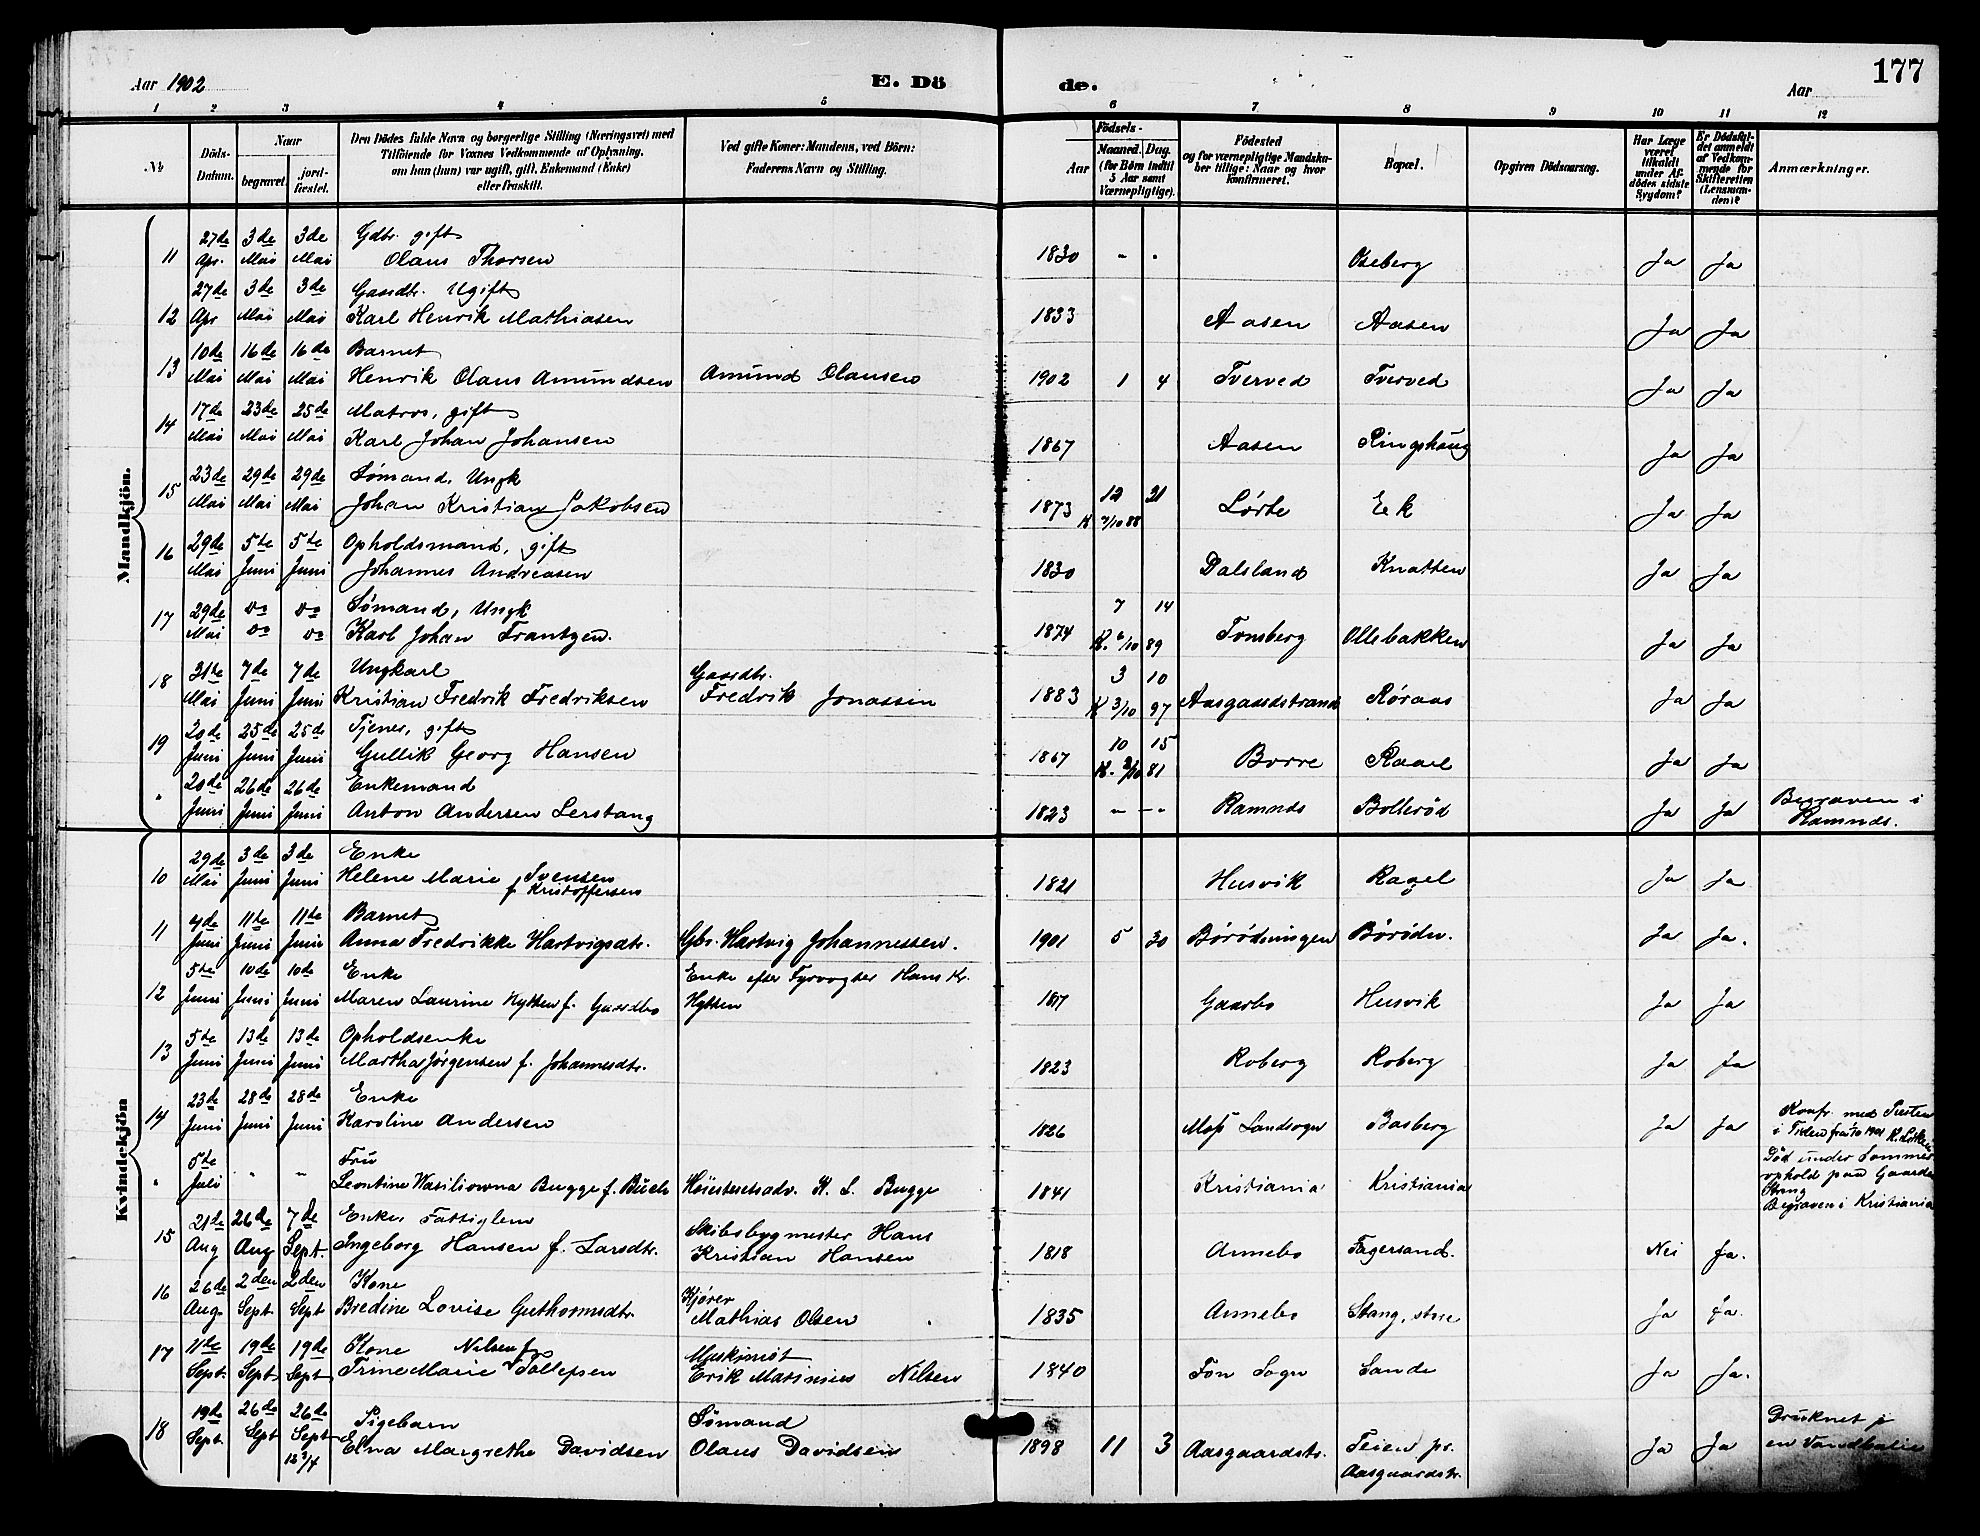 Aar 1902 E. Dö de. Aar 177
1 2 3 4 5 6 7 8 9 10 11 12
No
Döds-Datum.
Naar
begravet.
jord-fæstet.
Den Dödes fulde Navn og borgerlige Stilling (Næringsvei) med
Tilföiende for Voxnes Vedkommende af Oplysning,
om han (hun) var ugift, gift, Enkemand (Enke)
eller fraskilt.
Ved gifte Koner: Mandens, ved Börn:
Faderens Navn og Stilling.
Födsels-
Aar
Maaned. Dag.
(for Börn indtil
5 Aar samt
Værnepligtige).
Födested
og for værnepligtige Mandska-
ber tillige: Naar og hvor
konfirmeret.
Bopæl.
Opgiven Dödsaarsag.
Har Læge
været
tilkaldt
under Af-
dödes sidste
Sygdom?
Er Dödsfal-
det anmeldt
af Vedkom-
mende for
Skifteretten
(Lensman-
den)?
Anmærkninger.
Mandkjön.
27de 3de 3de Gdbr. gift
11 Apr. Mai Mai Olaus Thorsen 1830 - - Oseberg Ja Ja
27de 3de 3de Gaardbr. Ugift
12 Apr Mai Mai Karl Henrik Mathiasen 1833 Aasen Aasen Ja Ja
10de 16de 16de Barnet
13 Mai Mai Mai Henrik Olaus Amundsen Amund Olausen 1902 1 4 Tverved Tverved Ja Ja
17de 23de 25de Matros, gift
14 Mai Mai Mai Karl Johan Johansen 1867 Aasen Ringshaug Ja Ja
23de 29de 29de Sømand, Ungk
15 Mai Mai Mai Johan Kristian Jakobsen 1873 12 21 Lørbe Eek Ja Ja
K /10 88
29de 5te 5te Opholdsmand, gift
16 Mai Juni Juni Johannes Andreasen 1830 Dalsland Knatten Ja Ja
29de do do Sømand, Ungk 7 14
17 Mai do do Karl Johan Frantzen. 1874 K. 6/10 89 Tønsberg Ollebakken Ja Ja
31te 7de 7de Ungkarl Gaardbr. 3 10
18 Mai Juni Juni Kristian Fredrik Fredriksen Fredrik Jonassen 1883 K 3/10 97 Aasgaardstrand Røraas Ja Ja
20de 25de 25de Tjener, gift 10 15
19 Juni Juni Juni Gullik Georg Hansen 1867 K. 2/10 81 Borre Raael Ja Ja
20de 26de 26de Enkemand
" Juni Juni Juni Anton Andersen Lerstang 1823 - - - Ramnes Bollerød Ja Ja Begraven i
Ramnes.
Kvindekjön
29de 3de 3de Enke
10 Mai Juni Juni Helene Marie Svensen 1821 Husvik Raael Ja Ja
f. Kristoffersen
4de 11te 11te Barnet
11 Juni Juni Juni Anna Fredrikke Hartvigsdtr. Gbr. Hartvig Johannessen. 1901 5 30 Børødningen Børødn. Ja Ja.
5te 10de 10de Enke Enke efter Fyrvogter Hans Kr.
12 Juni Juni Juni Maren Laurine Hytten f. Gaardbo Hytten 1817 Gaarbo Husvik Ja Ja
5te 13de 13de Opholdsenke
13 Juni Juni Juni Martha Jørgensen f. Johannesdtr. 1823 Roberg Roberg Ja Ja
23de 28de 28de Enke
14 Juni Juni Juni Karoline Andersen 1826 Moss Landsogn Basberg Ja Ja Konfr. med Presten
i Tiden fra 1/10 1901
5te Fru
" Juli " " Leontine Wasiliowna Bugge f. Buch Høiesteretsadv. K. L. Bugge 1841 Kristiania Kristiania Død under Sommer-
ophold paa Gaarden
Stang
Begraven i Kristiania
21de 26de 7de Enke Fattiglem Skibsbygmester Hans
15 Aug Aug Sept. Ingeborg Hansen f. Larsdtr. Kristian Hansen 1818 Annebo Fagersand. Nei Ja.
26de 2den 2den Kone Kjører
16 Aug. Sept. Sept Bredine Lovise Guthormsdtr. Mathias Olsen 1835 Annebo Stang, store Ja Ja.
11te 19de 19de Kone Nilsen f. Maskinist
17 Sept. Sept Sept Trine Marie Tollefsen Erik Marinius Nilsen 1840 Fon Sogn Sande Ja Ja.
19de 26de 26de Pigebarn Sømand
18 Sept. Sept Sept Elna Margrethe Davidsen Olaus Davidsen 1898 11 3 Aasgaardstr. Teien pr. Ja Ja Druknet i
Aasgaardstr. en Vandbalie